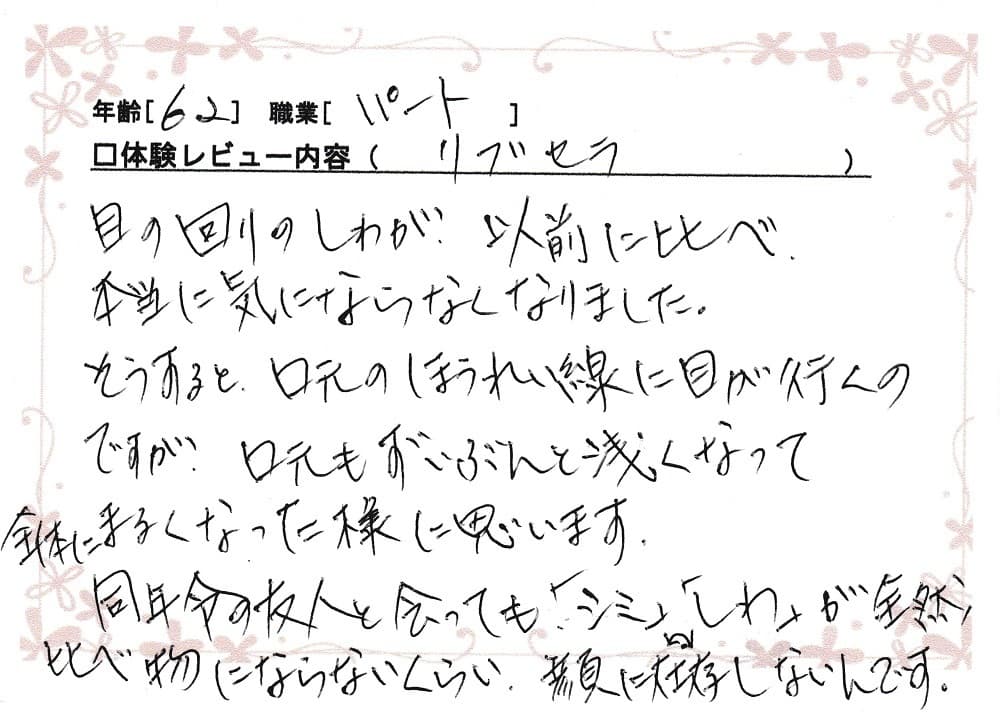 年齢[62] 職業[パート]
口体験レビュー内容(リブセラ)
目の回りのしわが、以前に比べ、
本当に気にならなくなりました。
そうすると、口元のほうれい線に目が行くの
ですが、口元もずいぶんと浅くなって
全体にまるくなった様に思います。
同年令の友人と会っても「シミ」「しわ」が全然、
比べ物にならないくらい、顔に存在しないんです。